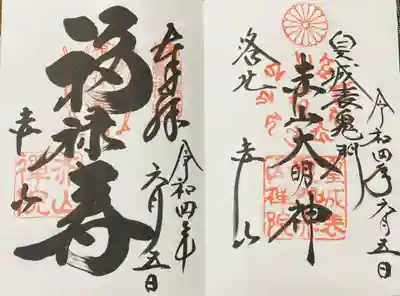 令和四年六月五日
皇城表鬼門
赤山大明神
洛北
赤山
奉拝
令和四年六月五日
福禄寿
赤山
赤山
禅院